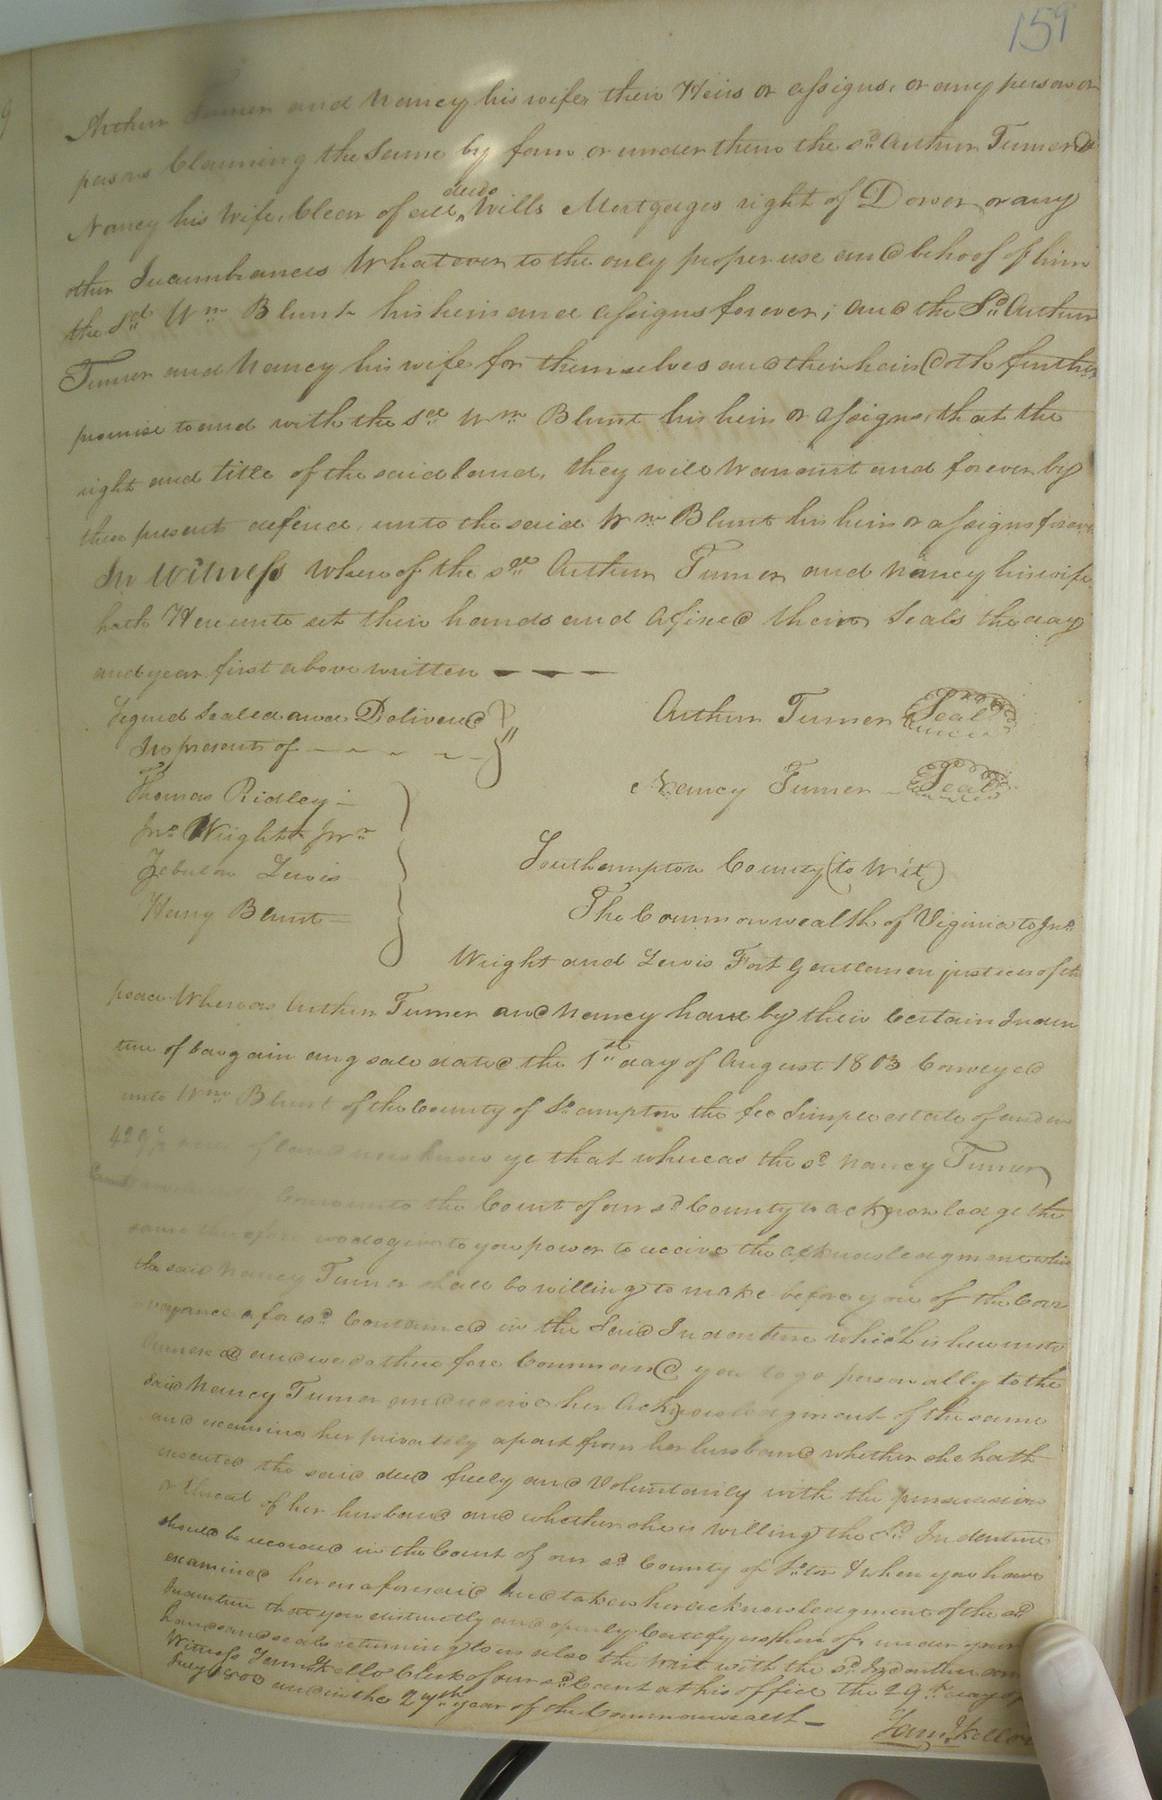 159
Arthur Turner and Nancy his wife, their Heirs or assigns, or any person or
persons Claiming the Same by from or under them the sd. Arthur Turner &
Nancy his wife, Clear of all deeds Wills Mortgages right of Dower, or any
other Incumbrances Whatever to the only proper use and behoof of him
the Sd Wm Blunt his heirs and assigns forever; and the Sd. Arthur
Turner and Nancy his wife for themselves and their heirs doth further
promise to and with the sd Wm Blunt his heirs or assigns, that the
right and title of the said land, they will Warrant and forever by
these present defend, unto the said Wm Blunt his heirs or assigns forever
In Witness Whereof the sd Arthur Turner and Nancy his wife
hath Hereunto set their hands and afixed their Seals the day
and year first above written
Signed Sealed and Delivered
In presents of
Arthur Turner Seal
Nancy Turner Seal
Thomas Ridley
Jno. Wright Jnr
Zebulon Lewis
Henry Blunt
Southampton County (to Wit)
The Commonwealth of Virginia to Jno.
Wright and Lewis Fort Gentlemen justices of the
peace Whereas Arthur Turner and Nancy have by their Certain Inden
ture of bargain ang sale dated the 1st day of August 1803 Conveyed
unto Wm Blunt of the County of So.ampton the fee Simple estate of and in
429½ acres of land know ye that whereas the sd Nancy Turner
Convenients the Court of our sd County to acknowledge the
same therefore we do give to you power to receive the acknowledgment which
the said Nancy Turner shall be willing to make before you of the Con
veyance aforesd. Contained in the Said Indenture which is hereunto
annexed and we do therefore Command you to go personally to the
said Nancy Turner and receive her acknowledgment of the same
and examine her privately apart from her husband whether she hath
executed the said deed freely and Voluntarily with the persuasion
or threat of her husband and whether she is willing the Sd. Indenture
should be recorded in the Court of our sd. County of So.ton & when you have
examined her as aforesaid and taken her acknowledgment of the sd
Indenture that you distinctly and openly Certify us thereof under your
hands and seals returning to us also the writ with the sd. Indenture
Witness Saml. Kello Clerk of our sd. Court at his office the 29th day of
July 1803 and in the 27th year of the Commonwealth
Saml. Kello